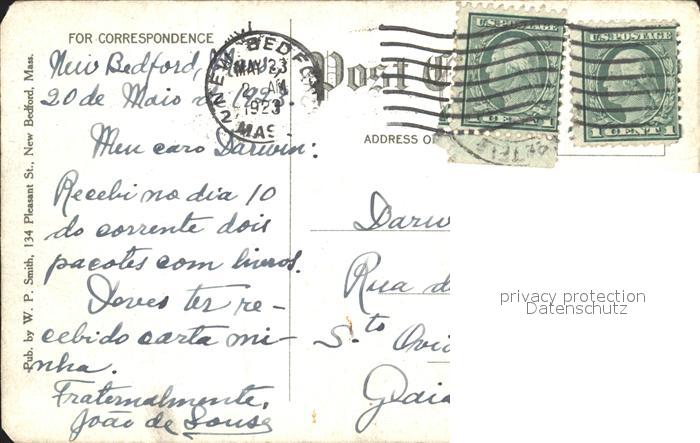 FOR CORRESPONDENCE
New Bedford, Mass.
20 de Maio de 1923.
Meu caro Darwin:
Recebi no dia 10
do corrente dois
pacotes com livros.
Deves ter re-
cebido carta mi-
nha.
Fraternalmente,
João de Sousa
Pub. by W. P. Smith, 134 Pleasant St., New Bedford, Mass.
NEW BEDFORD
MAY 23
2 AM
1923
MASS
Post C
ADDRESS O
U.S. POSTAGE
1 CENT 1
U.S. POSTAGE
1 CENT 1
Darw
Rua d
S.to Ovi
Gaia
privacy protection
Datenschutz